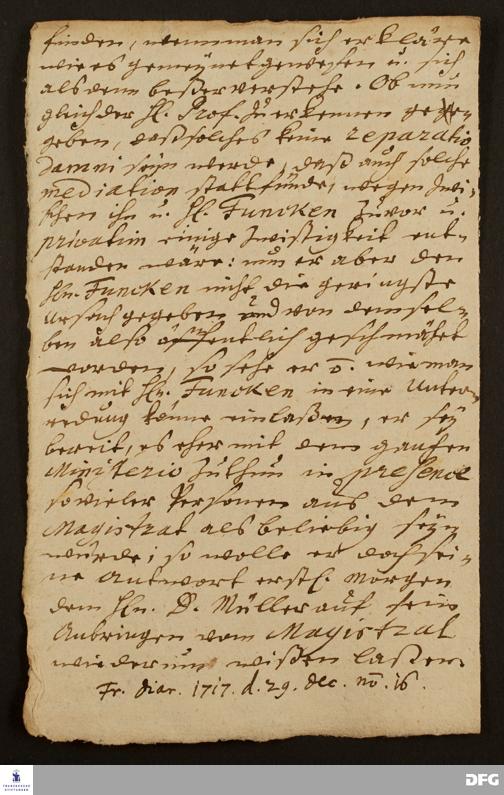 finden, wenn man sich erkläre
wie es gemeynet gewesen u. sich
als denn beßer verstehe. Ob nun
gleich der H. Prof. zu erkennen gege-
geben, daß solches keine reparatio
damni seyn werde, daß auch solche
mediation statt finde, wegen zwi-
schen ihn u. H. Funcken zuvor u.
privatim einige Zwistigkeit ent-
standen wäre: nun er aber den
Hn. Funcken nicht die geringste
Ursach gegeben und von demsel-
ben also öffentlich geschmähet
worden, so sehe er ō. wie man
sich mit Hn. Funcken in eine Unter-
redung könne einlaßen, er sey
bereit, es eher mit dem gantzen
Ministerio zuthun in presence
so vieler Personen aus dem
Magistrat als beliebig seyn
würde; so wolle er doch sei-
ne Antwort erstl. morgen
dem Hn. D. Müller auf sein
Anbringen vom Magistrat
wiederum wißen laßen.
Fr. diar. 1717. d. 29. Dec. nō. 16.
FRANCKESCHE
STIFTUNGEN
DFG